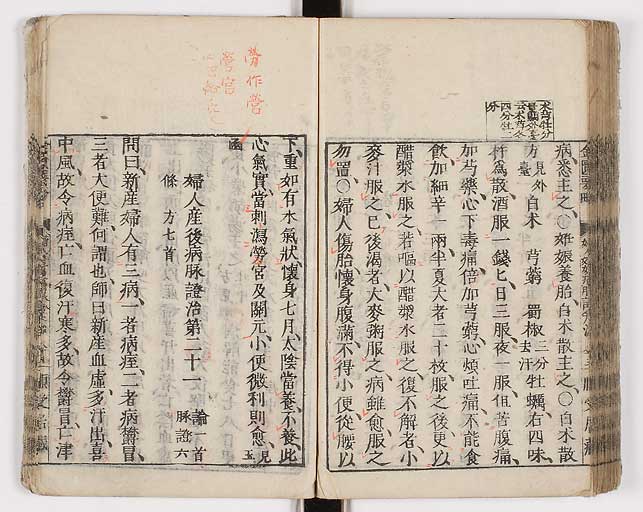 病悉主之○妊娠養胎白朮散主之○白朮散
方見外臺 白朮 芎藭 蜀椒三分去汗 牡蠣右四味
杵爲散酒服一錢匕日三服夜一服但苦腹痛
加芍藥心下毒痛倍加芎藭心煩吐痛不能食
飲加細辛一兩半夏大者二十枚服之後更以
醋漿水服之若嘔以醋漿水服之復不解者小
麥汁服之已後渴者大麥粥服之病雖愈服之
勿置○婦人傷胎懷身腹滿不得小便從腰以
下重如有水氣狀懷身七月太陰當養不養此
心氣實當刺瀉勞宮及關元小便微利則愈見玉
函
婦人産後病脉證治第二十一 論一首 脉證六
條 方七首
問曰新産婦人有三病一者病痙二者病鬱冒
三者大便難何謂也師曰新産血虛多汗出喜
中風故令病痙亡血復汗寒多故令鬱冒亡津
勞作營